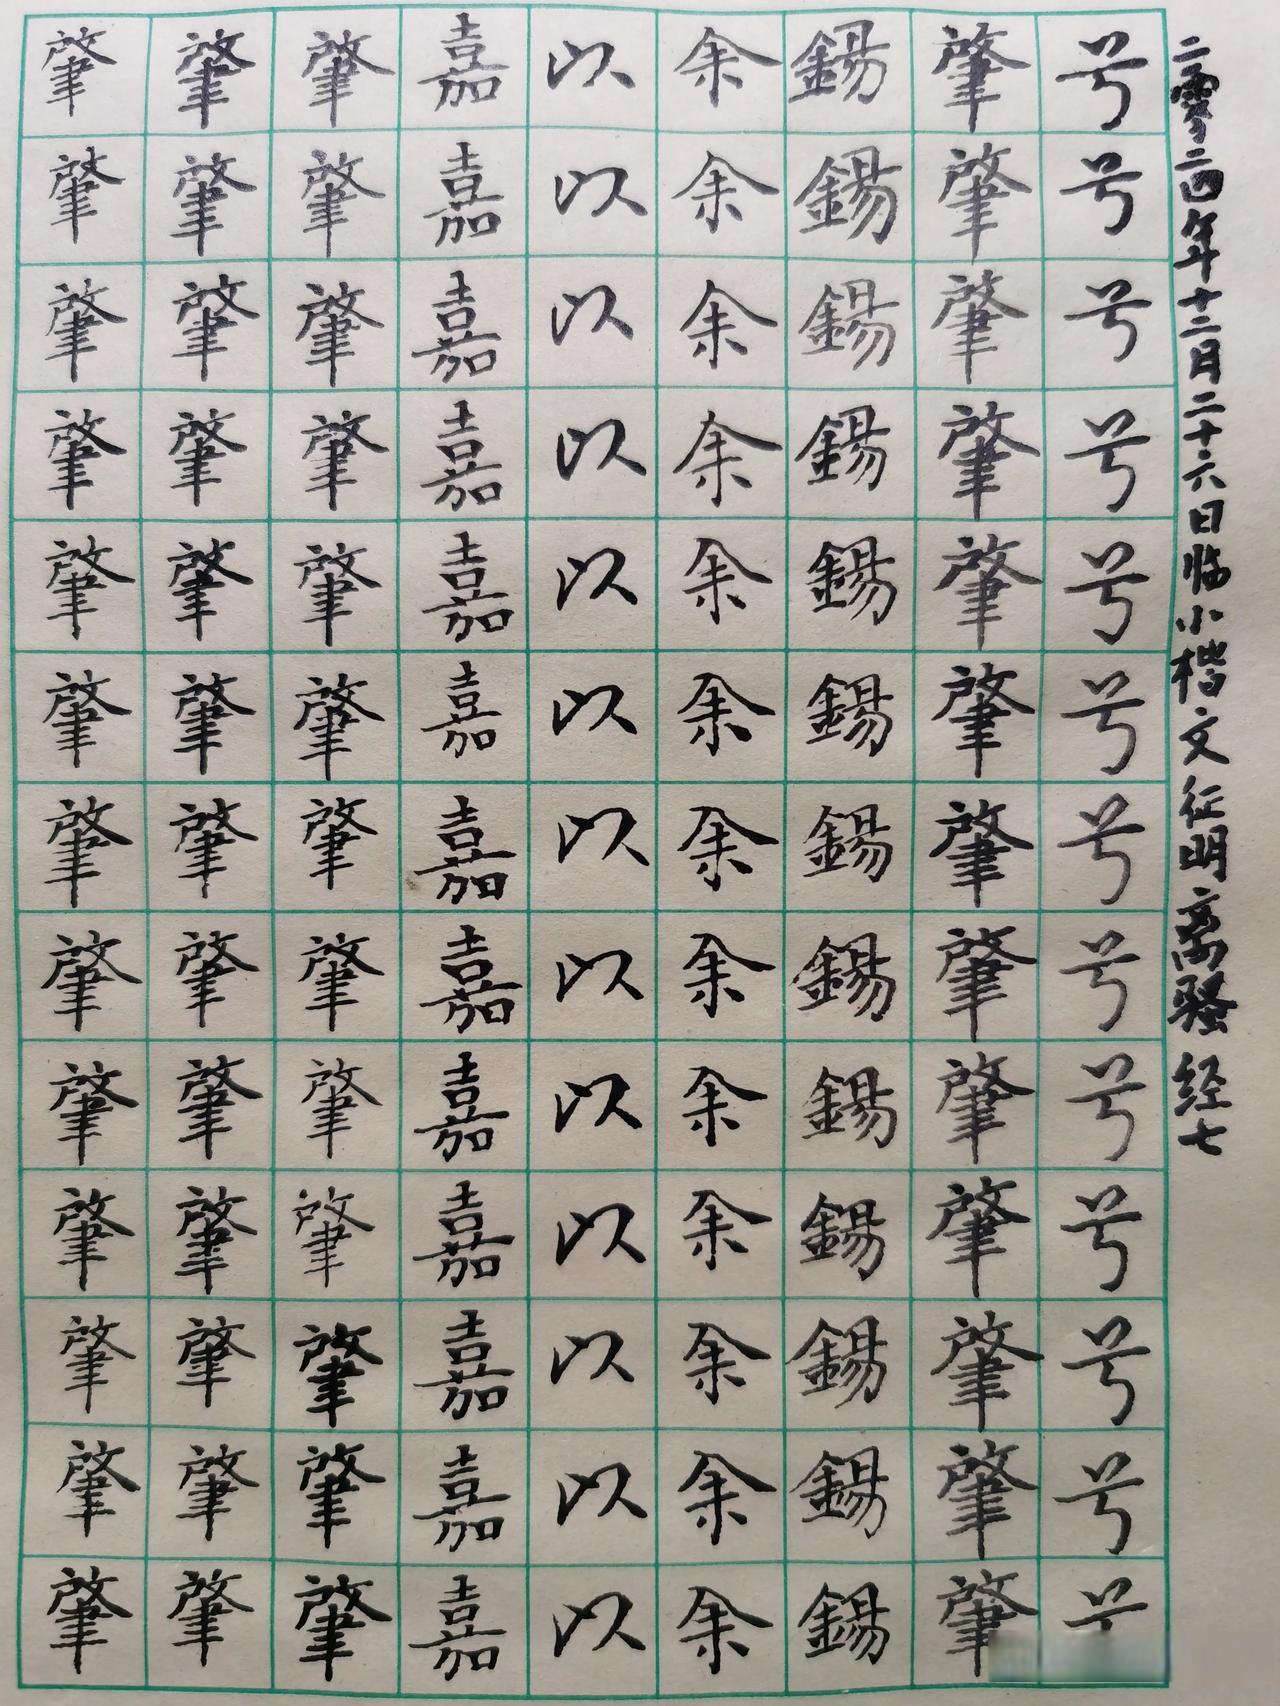 二零二四年十二月二十六日临小楷文征明离骚经七
兮兮兮兮兮兮兮兮兮兮兮兮兮
肇肇肇肇肇肇肇肇肇肇肇肇肇
錫錫錫錫錫錫錫錫錫錫錫錫錫
余余余余余余余余余余余余余
以以以以以以以以以以以以以
嘉嘉嘉嘉嘉嘉嘉嘉嘉嘉嘉嘉嘉
肇肇肇肇肇肇肇肇肇肇肇肇肇
肇肇肇肇肇肇肇肇肇肇肇肇肇
肇肇肇肇肇肇肇肇肇肇肇肇肇